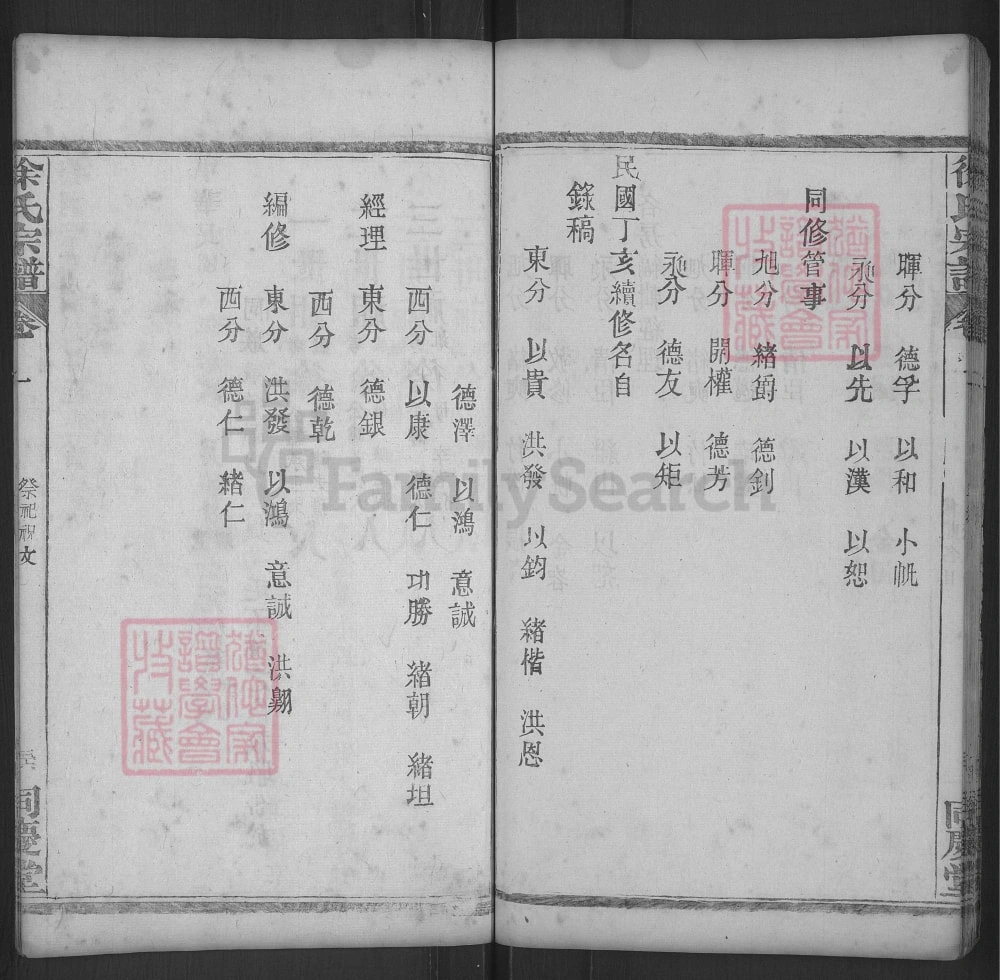 暉分 德孚 以和 小帆
永分 以先 以漢 以恕
同修管事
旭分 緒爵 德釗
暉分 開權 德芳
永分 德友 以矩
民國丁亥續修名目
錄稿
東分 以貴 洪發 以鈞 緒楷 洪恩
德澤 以鴻 意誠
西分 以康 德仁 功勝 緒朝 緒坦
經理 東分 德銀
西分 德乾
編修 東分 洪發 以鴻 意誠 洪翔
西分 德仁 緒仁
徐氏宗譜 卷一 祭祀祝文 同慶堂
徐氏宗譜 同慶堂
譜學會
FamilySearch